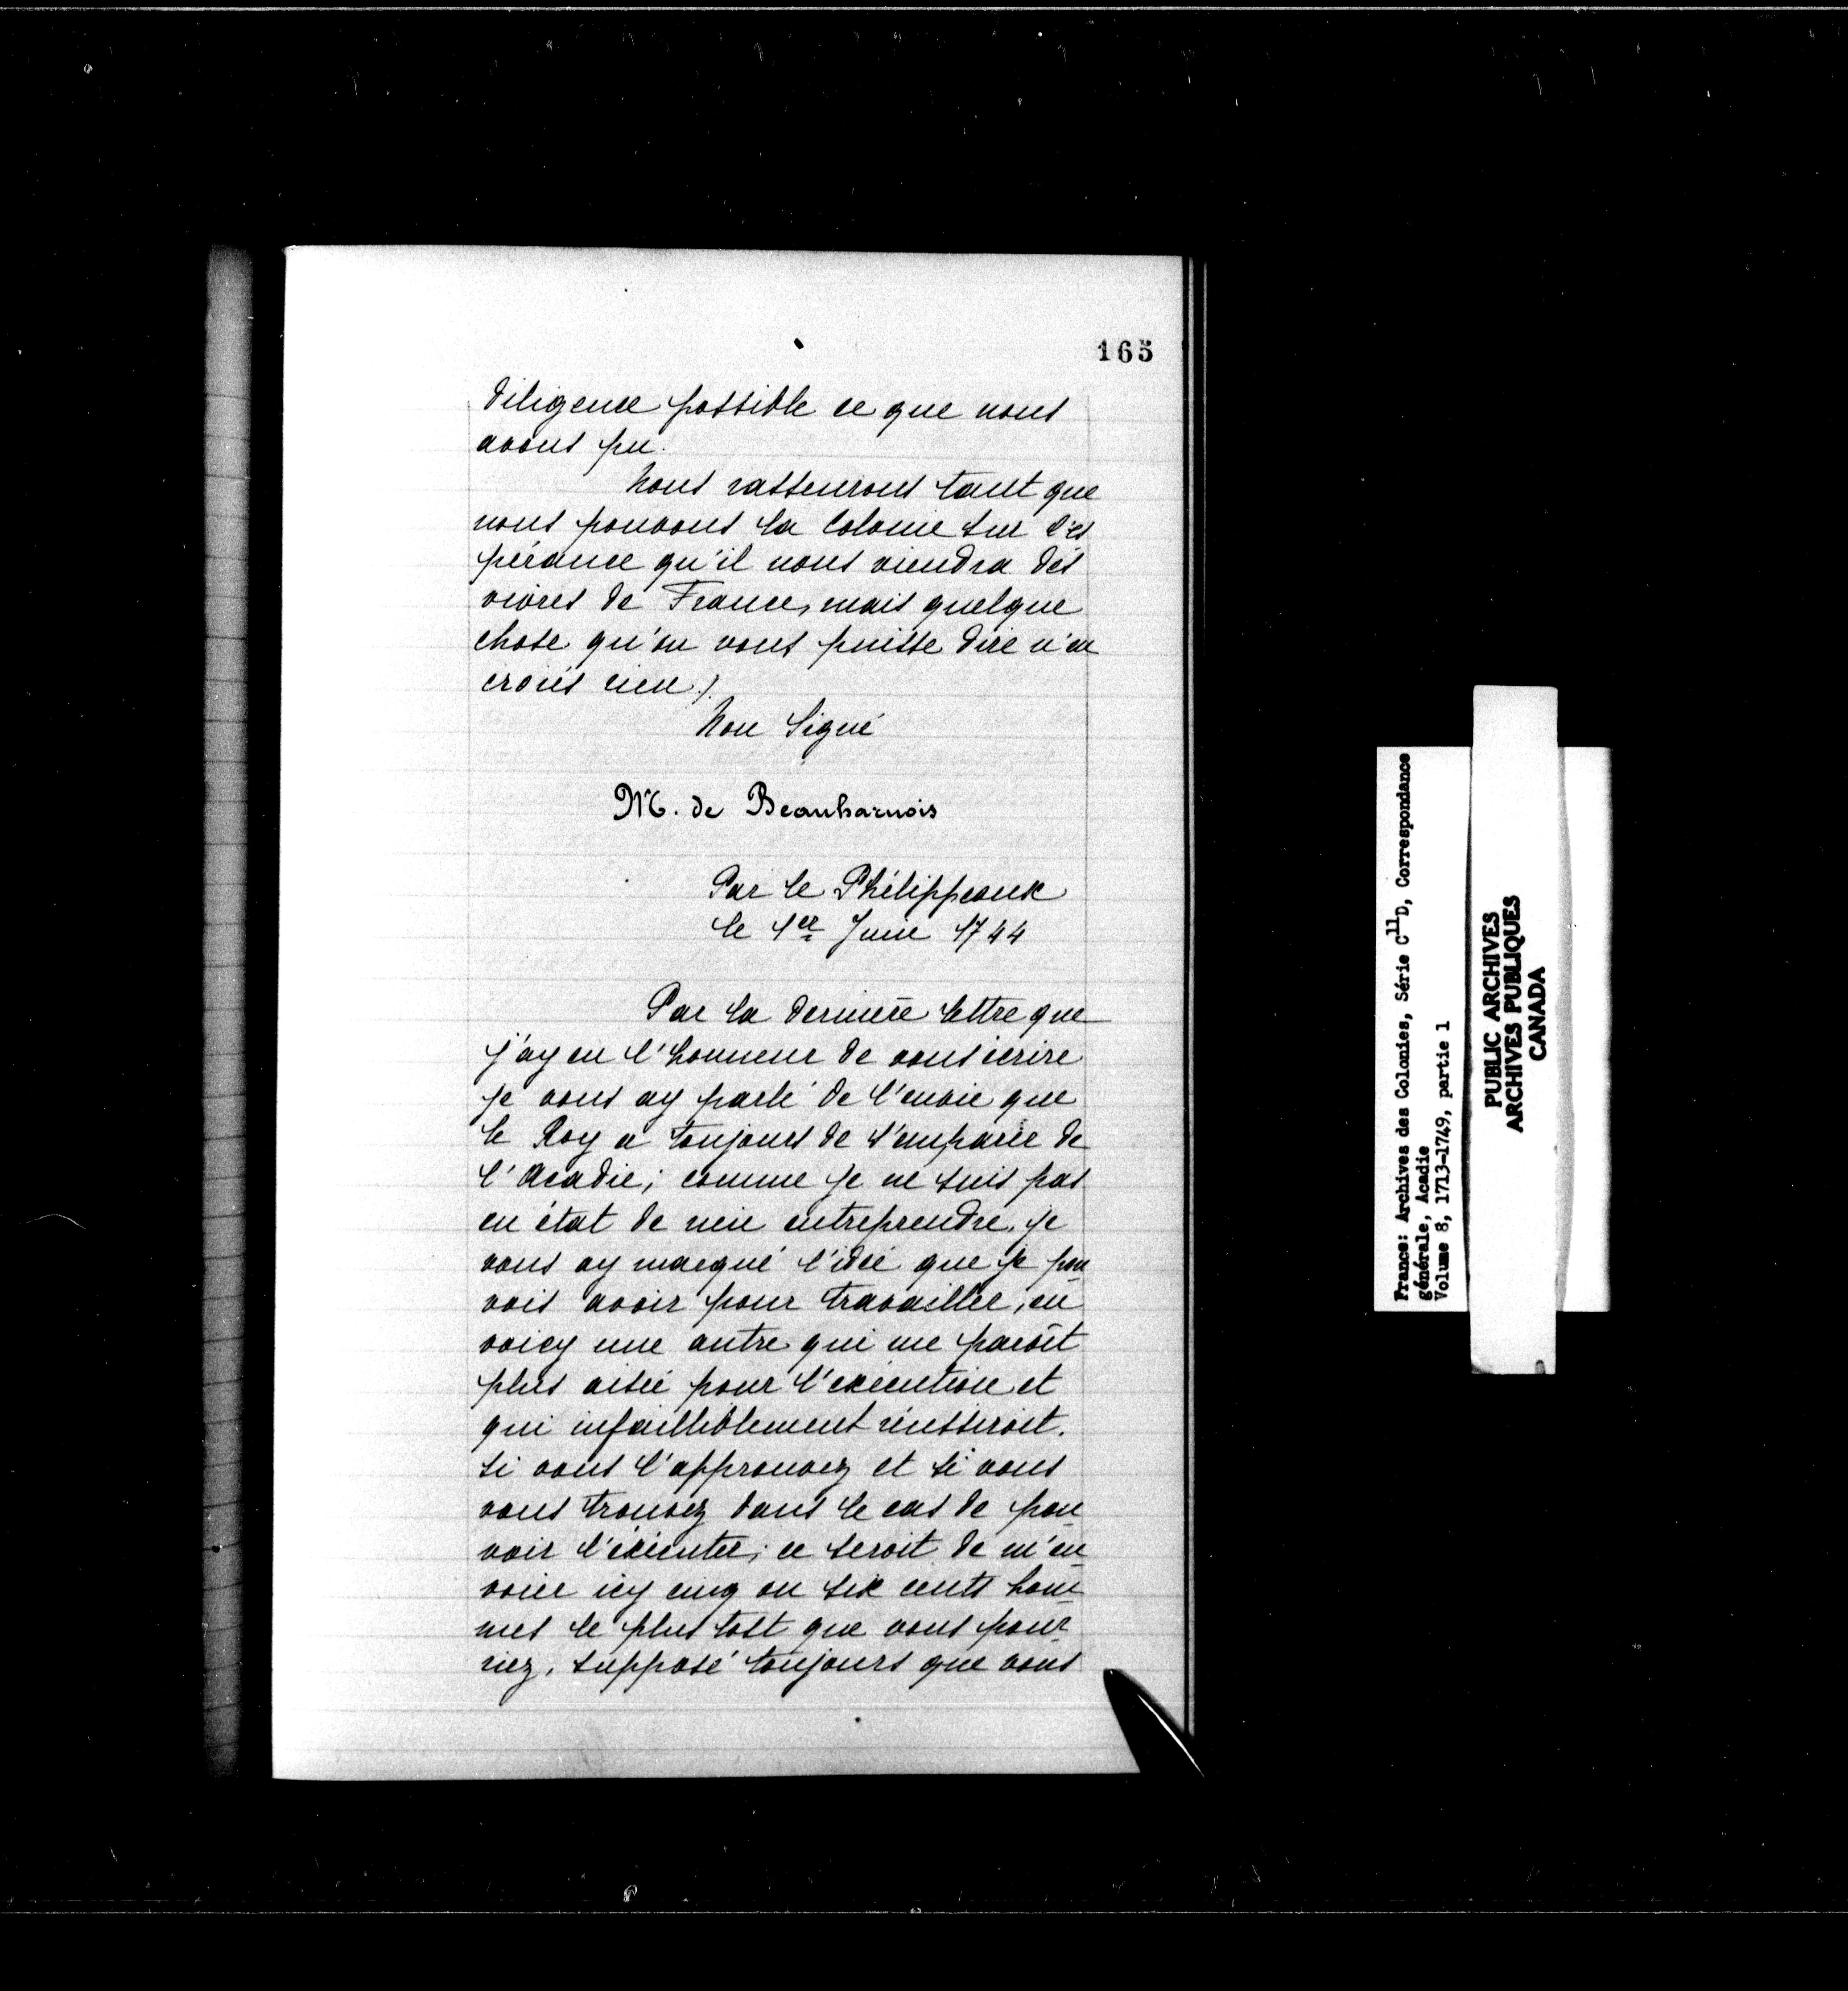 165
diligence possible ce que nous
avons pu.
Nous rasseurons tant que
nous pouvons la Colonie sur l'es
pérance qu'il nous viendra des
vivres de France, mais quelque
chose qu'on vous puisse dire n'en
croiés rien).
Non Signé
M. de Beauharnois
Par le Philippeaux
le 1er Juin 1744
Par la dernière lettre que
j'ay eu l'honneur de vous écrire
je vous ay parlé de l'envie que
le Roy a toujours de s'emparer de
l'Acadie; comme je ne suis pas
en état de rien entreprendre, je
vous ay marqué l'idée que je pou
vois avoir pour travailler, en
voicy une autre qui me paroît
plus aisée pour l'exécution et
qui infailliblement réussiroit.
Si vous l'approuvez et si vous
vous trouvez dans le cas de pou
voir l'éxécuter; ce seroit de m'en
voier icy cinq ou six cents hom
mes le plus tost que vous pour
riez, supposé toujours que vous
France: Archives des Colonies, Série C11D, Correspondance
générale, Acadie
Volume 8, 1713-1749, partie 1
PUBLIC ARCHIVES
ARCHIVES PUBLIQUES
CANADA